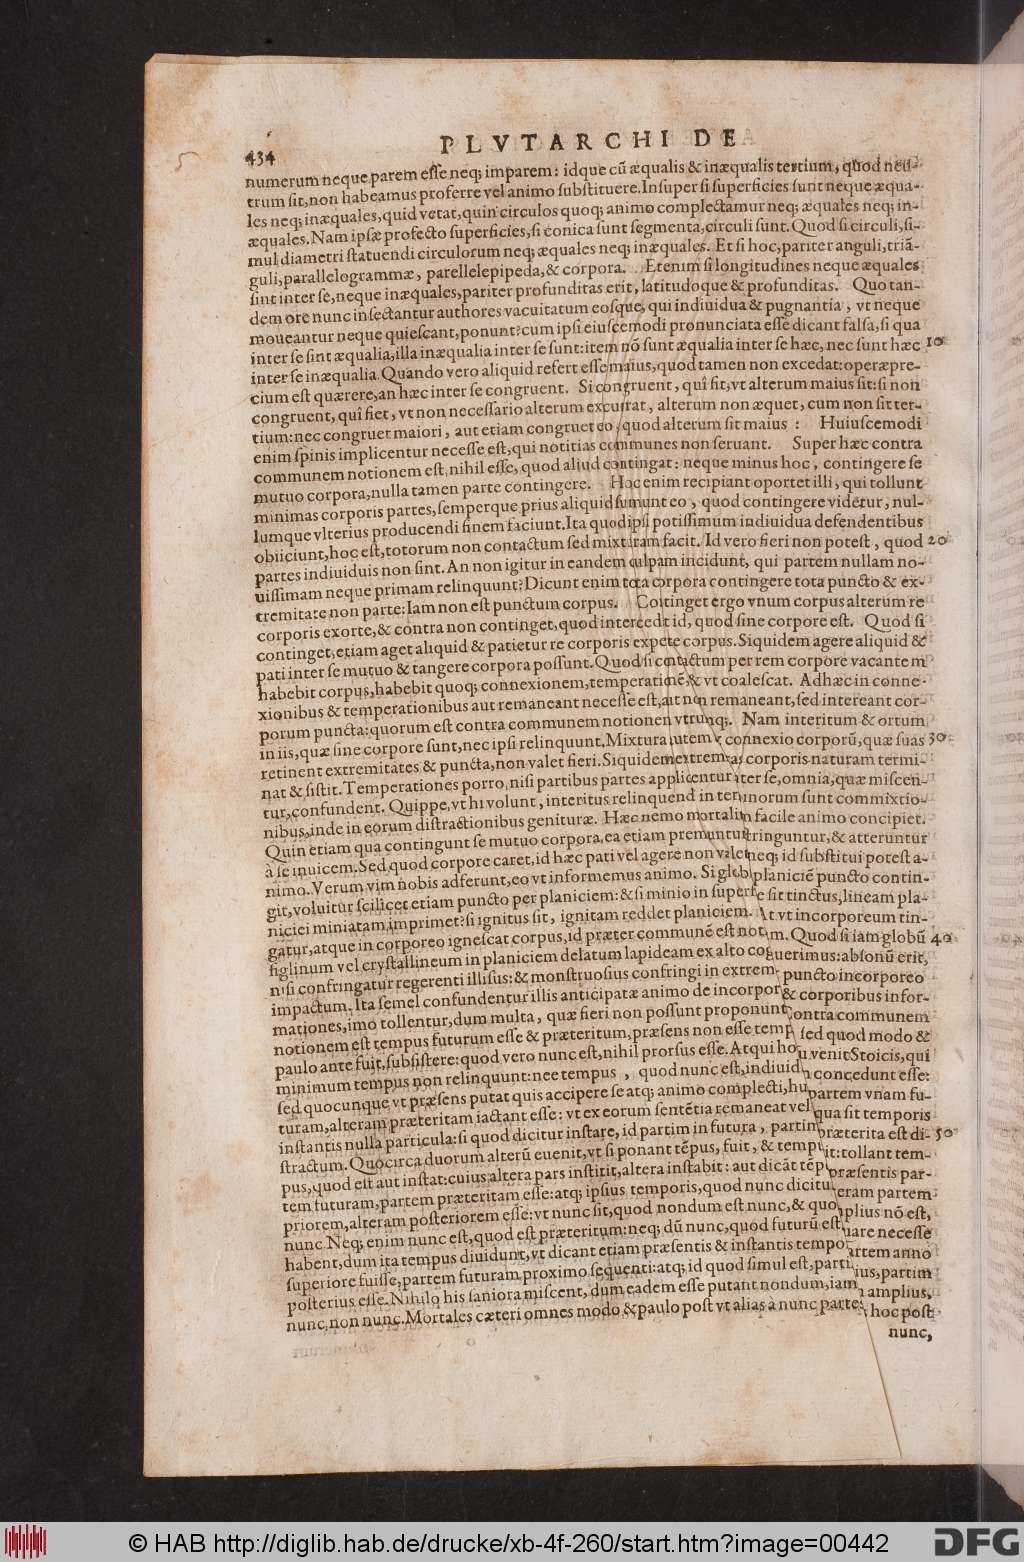 434
PLVTARCHI DE
numerum neque parem esse neq; imparem: idque cũ æqualis & inæqualis tertium, quod neu-
trum sit, non habeamus proferre vel animo substituere. Insuper si superficies sunt neque æqua-
les neq; inæquales, quid vetat, quin circulos quoq; animo complectamur neq; æquales neq; in-
æquales. Nam ipsæ profecto superficies, si conica sunt segmenta, circuli sunt. Quod si circuli, si-
mul diametri statuendi circulorum neq; æquales neq; inæquales. Et si hoc, pariter anguli, triã-
guli, parallelogrammæ, parellelepipeda, & corpora. Etenim si longitudines neque æquales
sint inter se, neque inæquales, pariter profunditas erit, latitudoque & profunditas. Quo tan-
dem ore nunc insectantur authores vacuitatum eosque, qui indiuidua & pugnantia, vt neque
moueantur neque quiescant, ponunt? cum ipsi eiuscemodi pronunciata esse dicant falsa, si qua
inter se sint æqualia, illa inæqualia inter se sunt: item nõ sunt æqualia inter se hæc, nec sunt hæc 10
inter se inæqualia. Quando vero aliquid refert esse maius, quod tamen non excedat: operæpre-
cium est quærere, an hæc inter se congruent. Si congruent, quî sit, vt alterum maius sit: si non
congruent, quî fiet, vt non necessario alterum excurrat, alterum non æquet, cum non sit ter-
tium: nec congruet maiori, aut etiam congruet eo, quod alterum sit maius : Huiuscemodi
enim spinis implicentur necesse est, qui notitias communes non seruant. Super hæc contra
communem notionem est, nihil esse, quod aliud contingat: neque minus hoc, contingere se
mutuo corpora, nulla tamen parte contingere. Hoc enim recipiant oportet illi, qui tollunt
minimas corporis partes, semperque prius aliquid sumunt eo, quod contingere videtur, nul-
lumque vlterius producendi finem faciunt. Ita quod ipsi potissimum indiuidua defendentibus
obiiciunt, hoc est, totorum non contactum sed mixturam facit. Id vero fieri non potest, quod 20
partes indiuiduis non sint. An non igitur in eandem culpam incidunt, qui partem nullam no-
uissimam neque primam relinquunt? Dicunt enim tota corpora contingere tota puncto & ex-
tremitate non parte: Iam non est punctum corpus. Cotinget ergo vnum corpus alterum re
corporis exorte, & contra non continget, quod intercedt id, quod sine corpore est. Quod si
continget, etiam aget aliquid & patietur re corporis expete corpus. Siquidem agere aliquid &
pati inter se mutuo & tangere corpora possunt. Quod si contactum per rem corpore vacantem
habebit corpus, habebit quoq; connexionem, temperationẽ, & vt coalescat. Ad hæc in conne-
xionibus & temperationibus aut remaneant necesse est, aut non remaneant, sed intereant cor-
porum puncta: quorum est contra communem notionen vtrunq;. Nam interitum & ortum
in iis, quæ sine corpore sunt, nec ipsi relinquunt. Mixtura utem & connexio corporũ, quæ suas 30
retinent extremitates & puncta, non valet fieri. Siquidem extremitas corporis naturam termi-
nat & sistit. Temperationes porro, nisi partibus partes applicentur iter se, omnia, quæ miscen-
tur, confundent. Quippe, vt hi volunt, interitus relinquend in terminorum sunt commixtio-
nibus, inde in eorum distractionibus genituræ. Hæc nemo mortalin facile animo concipiet.
Quin etiam qua contingunt se mutuo corpora, ea etiam premuntur stringuntur, & atteruntur
à se inuicem. Sed quod corpore caret, id hæc pati vel agere non valet neq; id substitui potest a-
nimo. Verum vim nobis adferunt, eo vt informemus animo. Si glob planiciẽ puncto contin-
git, voluitur scilicet etiam puncto per planiciem: & si minio in superfi e sit tinctus, lineam pla-
niciei miniatam imprimet? si ignitus sit, ignitam reddet planiciem. At vt incorporeum tin-
gatur, atque in corporeo ignescat corpus, id præter communẽ est not m. Quod si iam globũ 40
figlinum vel crystallineum in planiciem delatum lapideam ex alto co guerimus: absonũ erit,
nisi confringatur regerenti illisus: & monstruosius confringi in extrem puncto incorporeo
impactum. Ita semel confundentur illis anticipatæ animo de incorpor & corporibus infor-
mationes, imo tollentur, dum multa, quæ fieri non possunt proponunt contra communem
notionem est tempus futurum esse & præteritum, præsens non esse temp sed quod modo &
paulo ante fuit, subsistere: quod vero nunc est, nihil prorsus esse. Atqui ho u venit Stoicis, qui
minimum tempus non relinquunt: nee tempus, quod nunc est, indiuid concedunt esse:
sed quocunque vt præsens putat quis accipere se atq; animo complecti, hu partem vnam fu-
turam, alteram præteritam iactant esse: vt ex eorum sentẽtia remaneat vel qua sit temporis
instantis nulla particula: si quod dicitur instare, id partim in futura, partim præterita est di- 50
stractum. Quocirca duorum alterũ euenit, vt si ponant tẽpus, fuit, & temp it: tollant tem-
pus, quod est aut instat: cuius altera pars institit, altera instabit: aut dicãt tẽp præsentis par-
tem futuram, partem præteritam esse: atq; ipsius temporis, quod nunc dicitu eram partem
priorem, alteram posteriorem esse: vt nunc sit, quod nondum est nunc, & quo mplius nõ est,
nunc. Neq; enim nunc est, quod est præteritum: neq; dũ nunc, quod futurũ est uare necesse
habent, dum ita tempus diuidunt, vt dicant etiam præsentis & instantis tempo artem anno
superiore fuisse, partem futuram proximo sequenti: atq; id quod simul est, parti ius, partim
posterius esse. Nihilo his saniora miscent, dum eadem esse putant nondum, iam amplius,
nunc, non nunc. Mortales cæteri omnes modo & paulo post vt alias à nunc parte hoc post
nunc,
© HAB http://diglib.hab.de/drucke/xb-4f-260/start.htm?image=00442
DFG